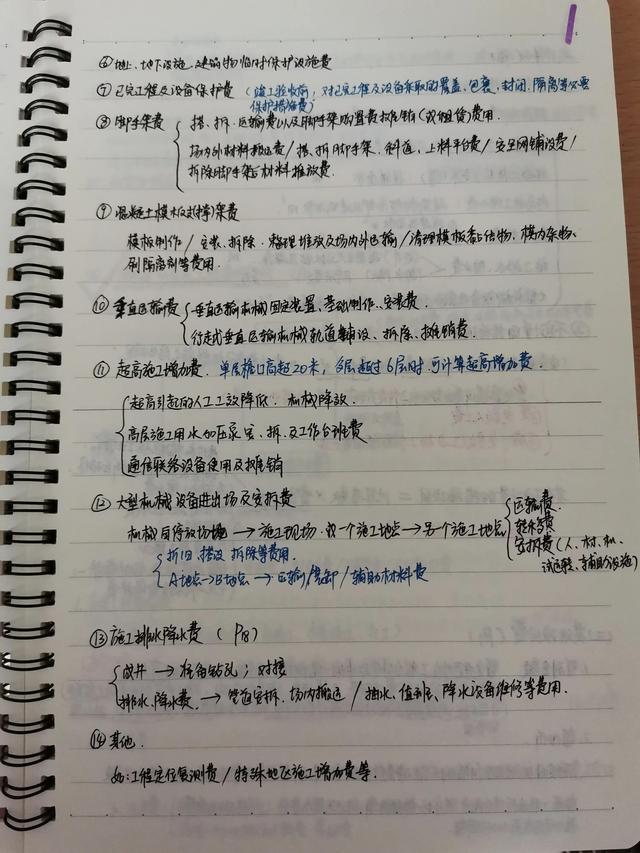 ⑥地上、地下设施、建筑物临时保护设施费
⑦已完工程及设备保护费(竣工验收前,对已完工程及设备采取的覆盖、包裹、封闭、隔离等必要
保护措施费)
⑧脚手架费 搭、拆、运输费以及脚手架购置费摊销(或租赁)费用.
场内外材料搬运费/搭、拆脚手架、斜道、上料平台费/安全网铺设费/
拆除脚手架后材料堆放费.
⑨混凝土模板及支撑架费
模板制作/安装、拆除、整理堆放及场内外运输/清理模板黏结物、模内杂物、
刷隔离剂等费用.
⑩垂直运输费 垂直运输机械固定装置、基础制作、安装费.
行走式垂直运输机械轨道铺设、拆除、摊销费.
⑪超高施工增加费. 单层檐口高超20米,多层超过6层时.可计算超高增加费.
超高引起的人工工效降低、机械降效.
高层施工用水加压泵安、拆及工作台班费
通信联络设备使用及摊销
⑫大型机械设备进出场及安拆费
机械自停放场地→施工现场.或一个施工地点→另一个施工地点 运输费.
装卸费
安拆费(人、材、机、
试运转、辅助设施)
折旧、搭设、拆除等费用.
A地点→B地点→运输,装卸/辅助材料费
⑬施工排水降水费(P18)
成井→准备钻孔;对接
排水、降水费.→管道安拆、场内搬运/抽水、值班、降水设备维修等费用.
⑭其他.
如:工程定位复测费/特殊地区施工增加费等.